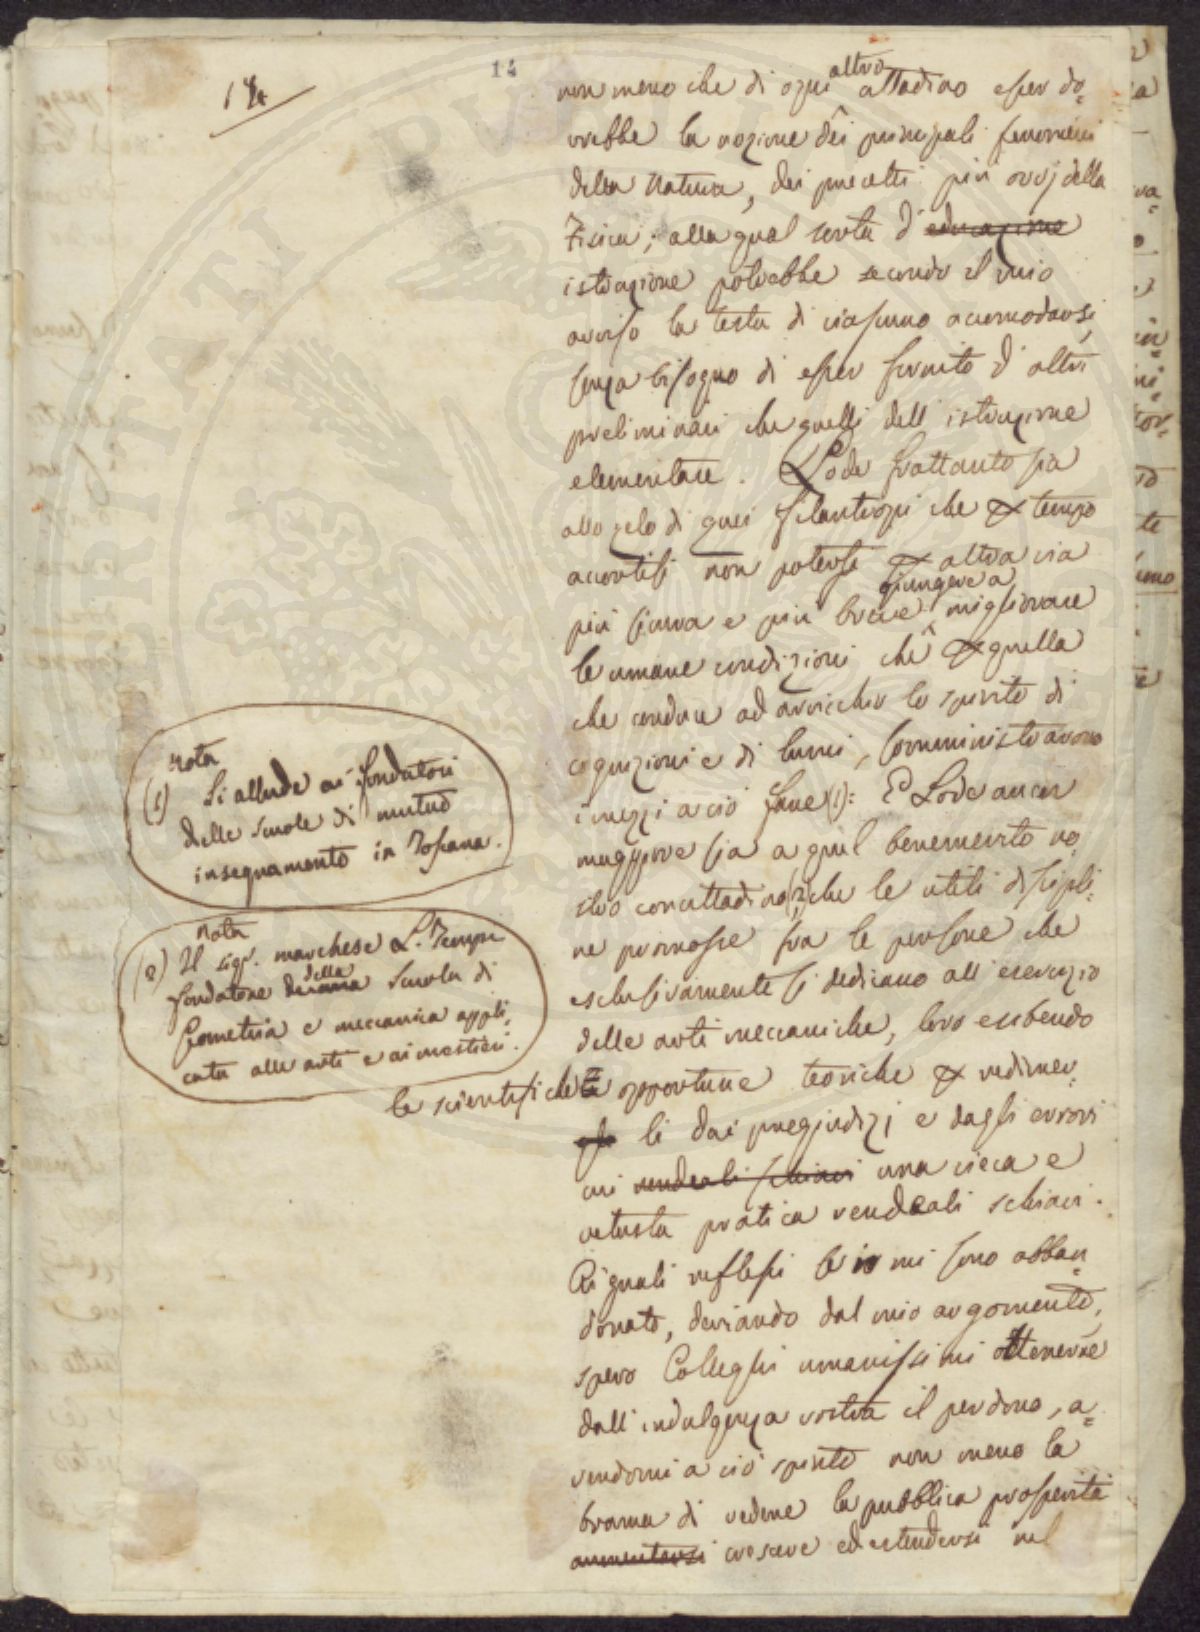 14
14
non meno che di ogni altro cittadino esser do-
vrebbe la nozione dei principali fenomeni
della Natura, dei precetti più ovvj della
Fisica; alla qual sorta d' educazione
istruzione potrebbe secondo il mio
avviso la testa di ciascuno accomodarsi,
senza bisogno di esser fornito d' altri
preliminari che quelli dell' istruzione
elementare. Lode frattanto sia
allo zelo di quei filantropi che per tempo
accortisi non potersi per altra via
più sicura e più breve giungere a migliorare
le umane condizioni che per quella
che conduce ad arricchir lo spirito di
cognizioni e di lumi, somministrarono
i mezzi a ciò fare (1): E Lode ancor
maggiore sia a quel benemerito no-
stro concittadino (2) che le utili discipli-
ne promosse fra le persone che
esclusivamente si dedicano all' esercizio
delle arti meccaniche, loro esibendo
le scientifiche e opportune teoriche per redimer-
li dai pregiudizj e dagli errori
cui rendeali schiavi una cieca e
vetusta pratica rendeali schiavi.
Ai quali riflessi se io mi sono abban-
donato, deviando dal mio argomento,
spero Colleghi umanissimi ottenerne
dall' indulgenza vostra il perdono, a-
vendomi a ciò spinto non meno la
brama di vedere la pubblica prosperità
aumentarsi crescere ed estendersi nel
Nota
(1) Si allude ai fondatori
delle scuole di mutuo
insegnamento in Toscana.
Nota
(2) Il sigr. marchese L. Tempi
fondatore della Scuola di
Geometria e meccanica appli-
cata alle arti e ai mestieri.